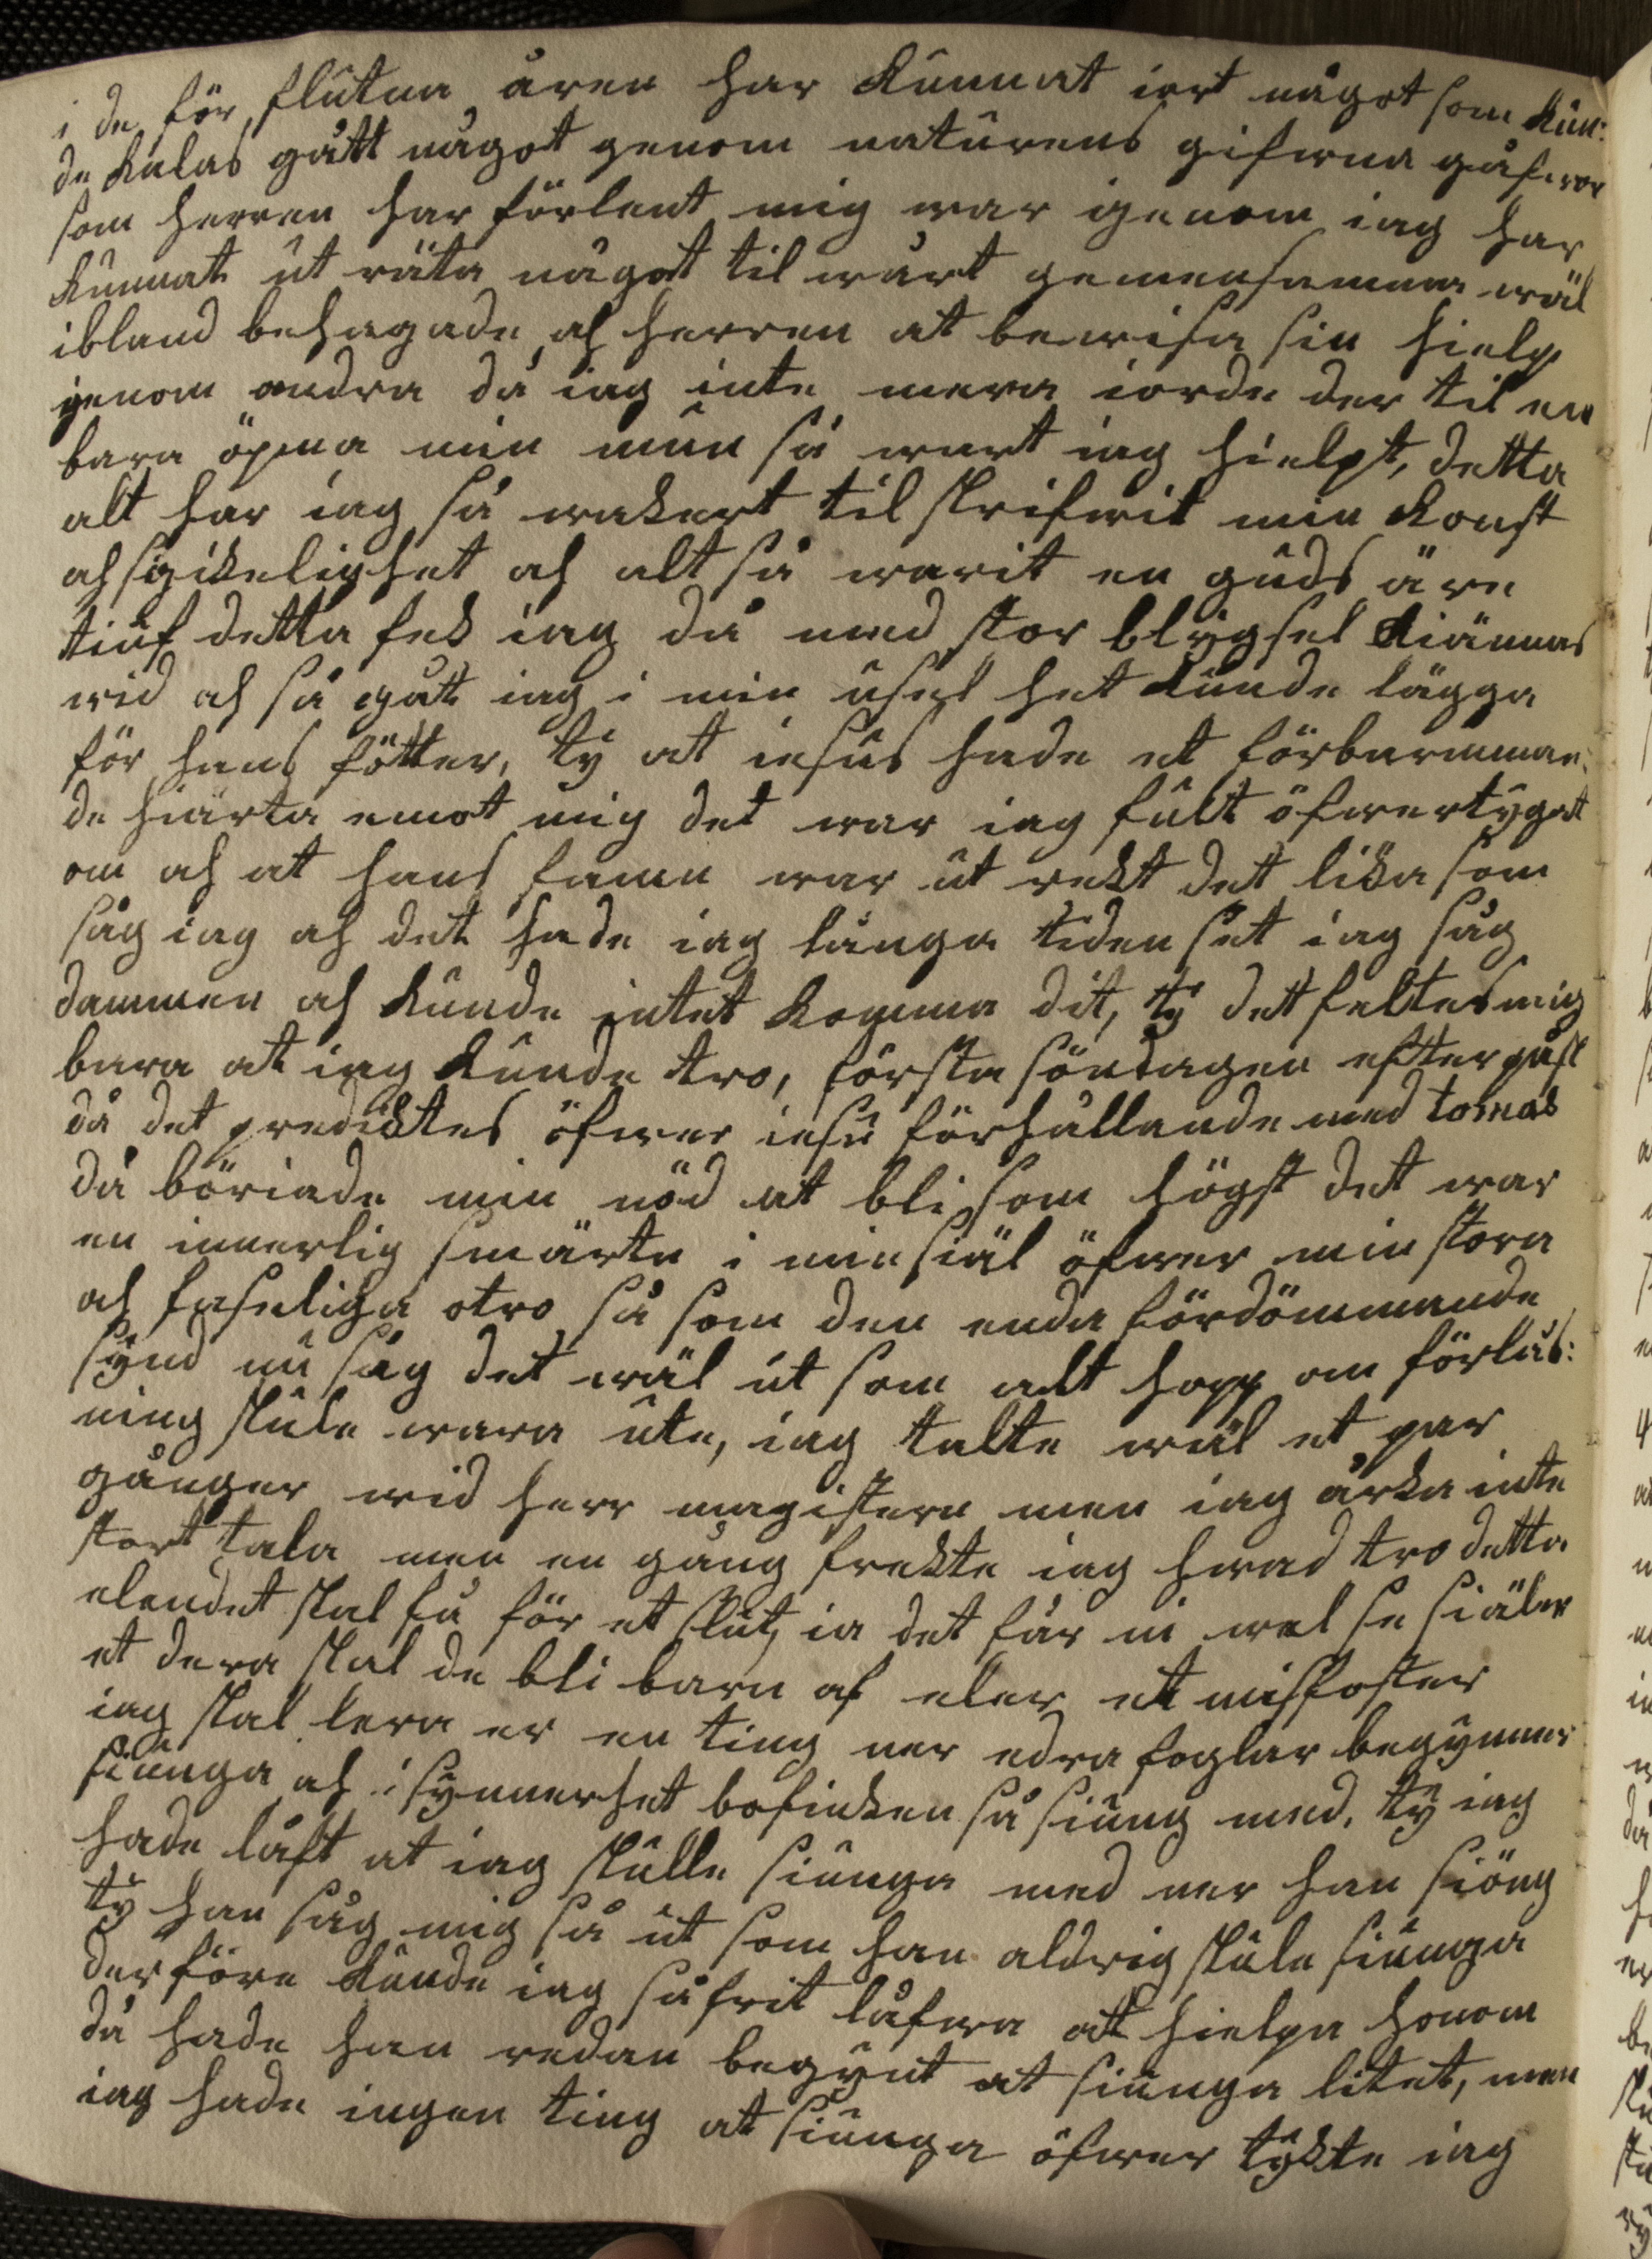 i de för flutna åren har kunnat iort något som kun:
de kalas gått något genom naturens gifwna gåfwor
som herren har förlent mig war igenom iag har
kunnat ut räta något til wårt gemensamma wäl
ibland behagade ok herren at bewisa sin hielp
genom andra då iag inte mera iorde der til en
bara öpna min mun så wart iag hielpt, detta
alt har iag så wakert til skrifwit min konst
ok sikelighet ok altså warit en guds äre
tiuf detta fek iag då med stor blygsel kiännas
wid ok så gått iag i min usel het kunde lägga
för hans fötter, ty at iesus hade et förbarmman:
de hiärta emot mig det war iag fult öfwertygat
om ok at hans famn war ut rekt det lika som
såg iag ok det hade iag långa tiden set iag såg
dammen ok kunde intet komma dit, ty det feltes mig
bara at iag kunde tro, första söndagen efter påsk
då det prediktes öfwer iesu förhållande med tomas
då böriade min nöd at bli som högst det war
en innerlig smärta i min siäl öfwer min stora
ok faseliga otro så som den enda fördömmande
synd nu såg det wäl ut som alt hopp om förlås:
ning skule wara ute, iag talte wäl et par
gånger wid herr magistern men iag årka inte
stort tala men en gång frekte iag hwad tro detta
elendet skal få för et slut, ia det får ni wel se siäler
et dera skal de bli barn af eler et misfoster
iag skal lera er en ting ner edra foglar begynner
siunga ok i synnerhet bofinken så siung med, ty iag
hade låft at iag skulle siunga med ner han siöng
ty han såg mig så ut som han aldrig skule siunga
derföre kunde iag så frit låfwa att hielpa honom
då hade han redan begynt at siunga litet, men
iag hade ingen ting at siunga öfwer tykte iag